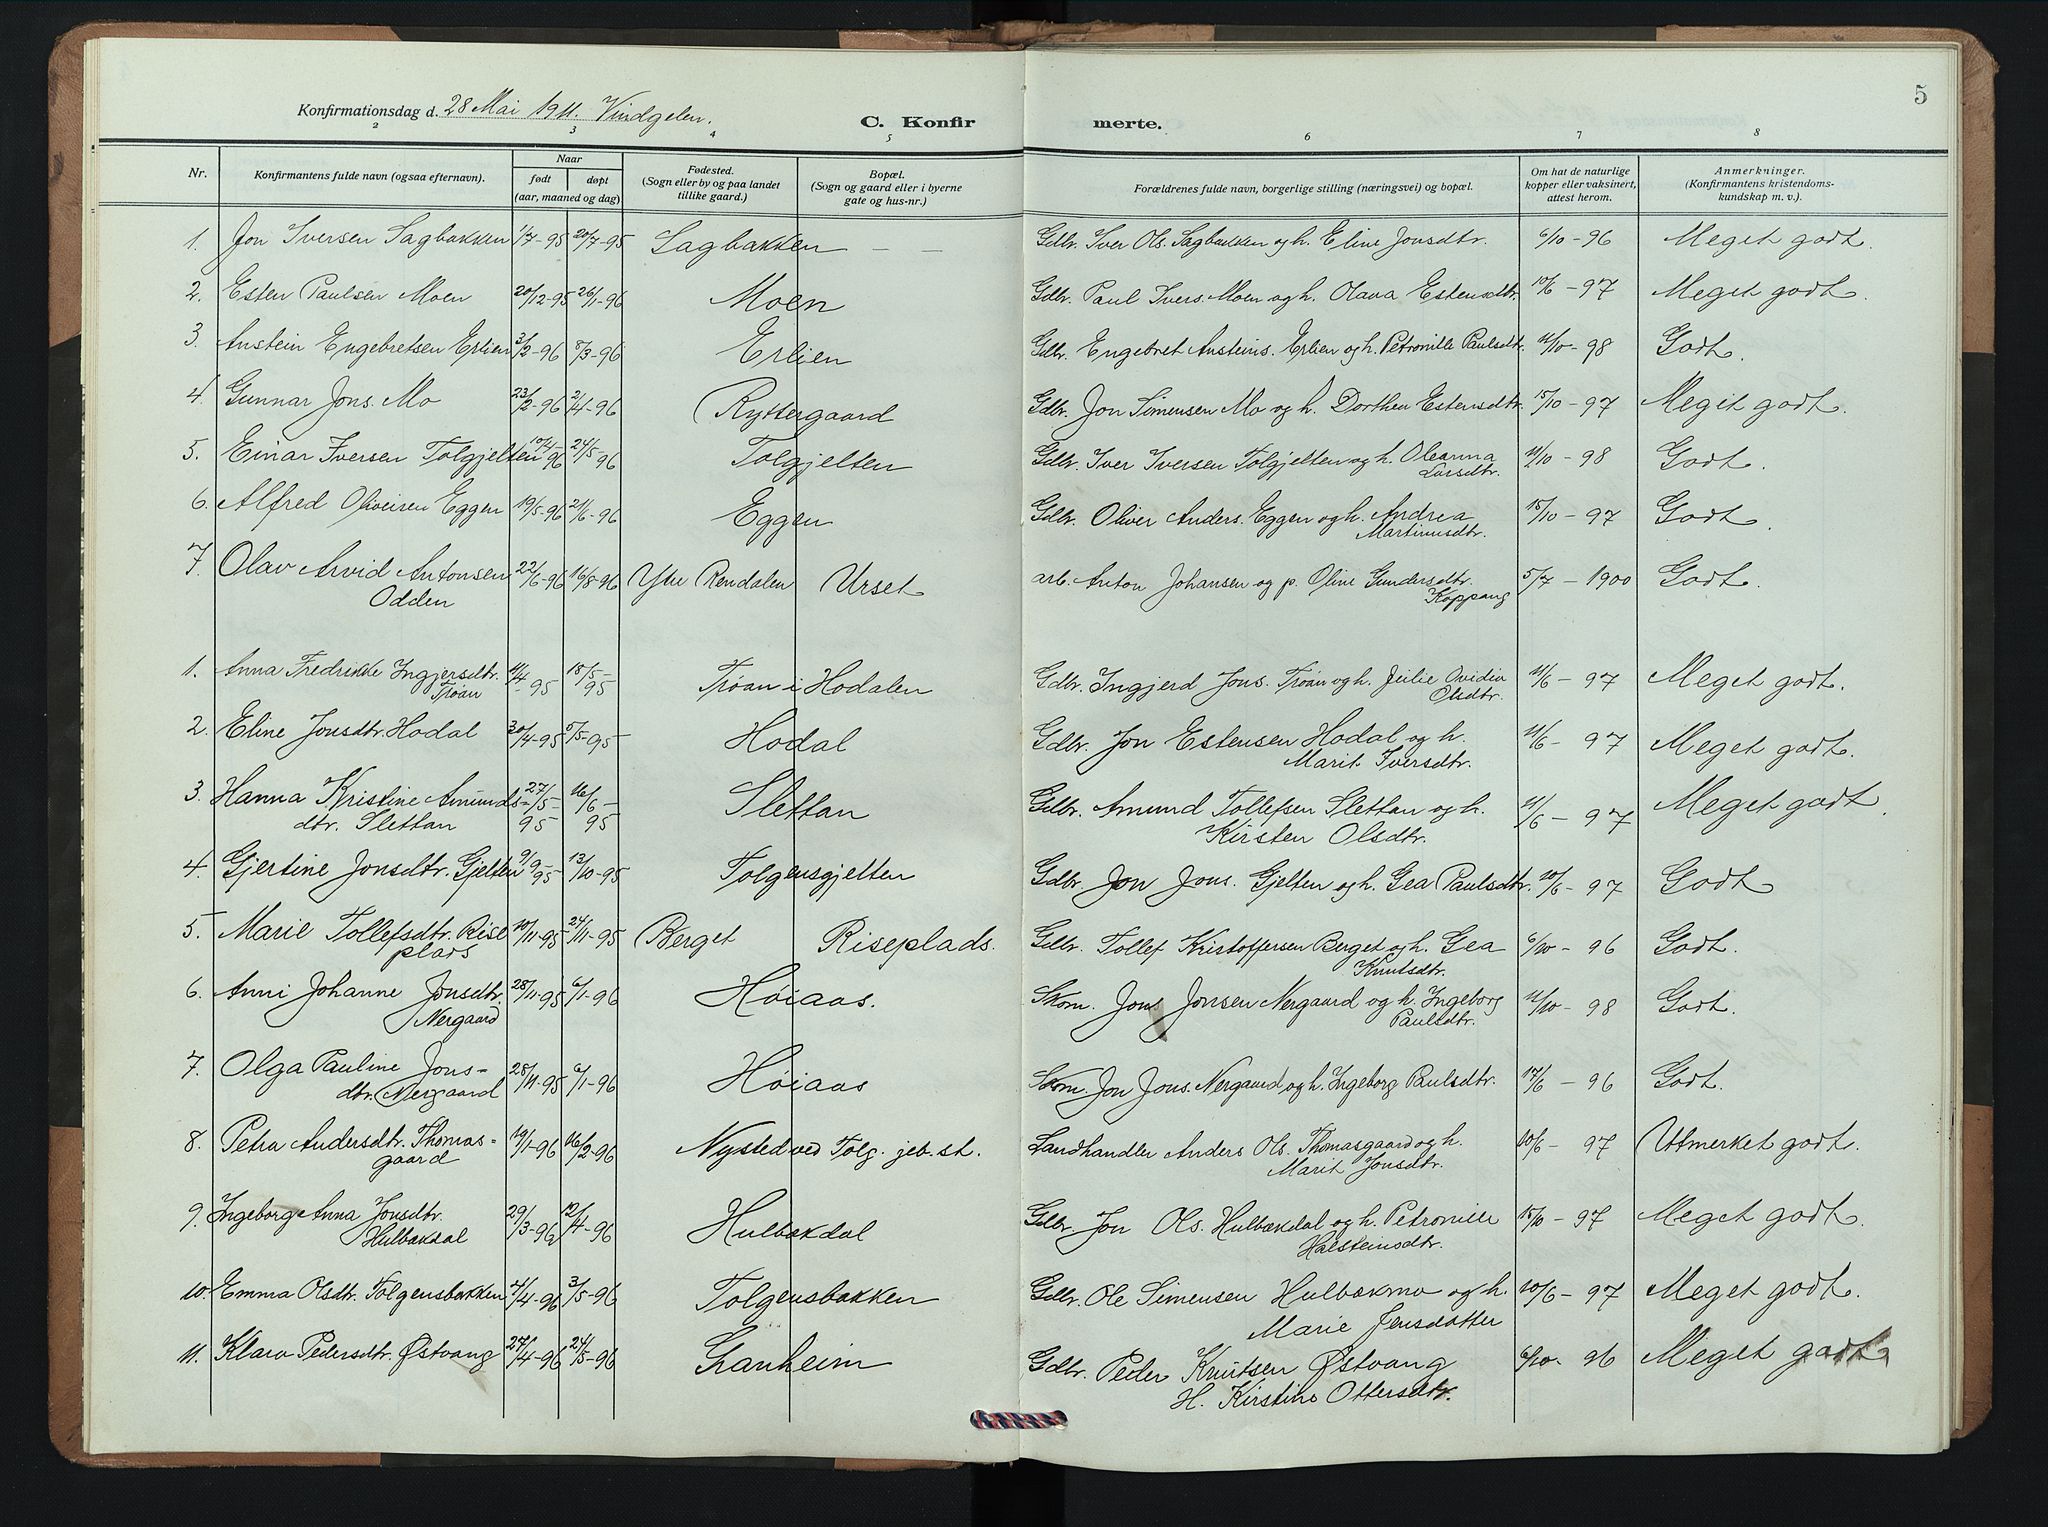 5
Konfirmationsdag d. 28 Mai 1911. Vindgelen.
C. Konfir merte.
2 3 4 5 6 7 8
Nr. Konfirmantens fulde navn (ogsaa efternavn). Naar født døpt (aar, maaned og dag) Fødested. (Sogn eller by og paa landet tillike gaard.) Bopæl. (Sogn og gaard eller i byerne gate og hus-nr.) Forældrenes fulde navn, borgerlige stilling (næringsvei) og bopæl. Om hat de naturlige kopper eller vaksinert, attest herom. Anmerkninger. (Konfirmantens kristendoms-kundskap m. v.).
1. Jon Iversen Sagbakken 1/7-95 20/7-95 Sagbakken — — Gdbr. Iver Ols. Sagbakken og h. Eline Jonsdtr. 6/10-96 Meget godt.
2. Esten Paulsen Moen 20/12-95 26/1-96 Moen Gdbr. Paul Ivers. Moen og h. Olava Estensdtr. 10/6-97 Meget godt.
3. Anstein Engebretsen Erlien 3/2-96 8/3-96 Erlien Gdbr. Engebret Ansteins. Erlien og h. Petronille Paulsdtr. 11/10-98 Godt.
4. Gunnar Jons. Mo 23/2-96 2/4-96 Ryttergaard Gdbr. Jon Simensen Mo og h. Dorthea Estensdtr. 15/10-97 Meget godt.
5. Einar Iversen Tolgjelten 10/4-96 24/5-96 Tolgjelten Gdbr. Iver Iversen Tolgjelten og h. Oleanna
Larsdtr. 11/10-98 Godt.
6. Alfred Oliversen Eggen 19/5-96 21/6-96 Eggen Gdbr. Oliver Anders. Eggen og h. Andrea
Martinusdtr. 15/10-97 Godt.
7. Olav Arvid Antonsen 22/6-96 16/8-96 Ytre Rendalen Urset arb. Anton Johansen og p. Oline Gundersdtr. 5/7-1900 Godt.
Odden Koppang
1. Anna Fredrikke Ingjersdtr. 11/4-95 18/5-95 Trøan i Hodalen Gdbr. Ingjerd Jons. Trøan og h. Julie Ovidia 11/6-97 Meget godt.
Trøan Olsdtr.
2. Eline Jonsdtr. Hodal 30/4-95 5/5-95 Hodal Gdbr. Jon Estensen Hodal og h. 11/6-97 Meget godt.
Marit Iversdtr.
3. Hanna Kristine Amunds- 27/5-95 16/6-95 Slettan Gdbr. Amund Tollefsen Slettan og h. 11/6-97 Meget godt.
dtr. Slettan Kirsten Olsdtr.
4. Gjertine Jonsdtr. Gjelten 9/9-95 13/10-95 Tolgensgjelten Gdbr. Jon Jons. Gjelten og h. Gea Paulsdtr. 10/6-97 Godt
5. Marie Tollefsdtr. Rise 10/11-95 24/11-95 Berget Riseplads. Gdbr. Tollef Kristoffersen Berget og h. Gea 6/10-96 Godt.
plads Knutsdtr.
6. Anni Johanne Jonsdtr. 28/11-95 6/1-96 Høiaas. Skom. Jons Jonsen Nergaard og h. Ingeborg 11/10-98 Godt.
Nergaard Paulsdtr.
7. Olga Pauline Jons- 28/11-95 6/1-96 Høiaas Skom Jon Jons. Nergaard og h. Ingeborg Paulsdtr. 17/6-96 Godt.
dtr. Nergaard
8. Petra Andersdtr. Thomas- 19/1-96 16/2-96 Nysted ved Tolg. jeb. st. Landhandler Anders Ols. Thomasgaard og h. 10/6-97 Utmerket godt.
gaard Marit Jonsdtr.
9. Ingeborg Anna Jonsdtr. 29/3-96 12/4-96 Hulbækdal Gdbr. Jon Ols. Hulbækdal og h. Petronille 15/10-97 Meget godt.
Hulbækdal Halsteinsdtr.
10. Emma Olsdtr. Tolgensbakken 4/4-96 3/5-96 Tolgensbakken Gdbr. Ole Simensen Hulbækmo og h. 10/6-97 Meget godt.
Marie Jensdotter
11. Klara Pedersdtr. Østvang 27/4-96 24/5-96 Granheim Gdbr. Peder Knutsen Østvang 6/10-96 Meget godt
H. Kirstine Ottersdtr.